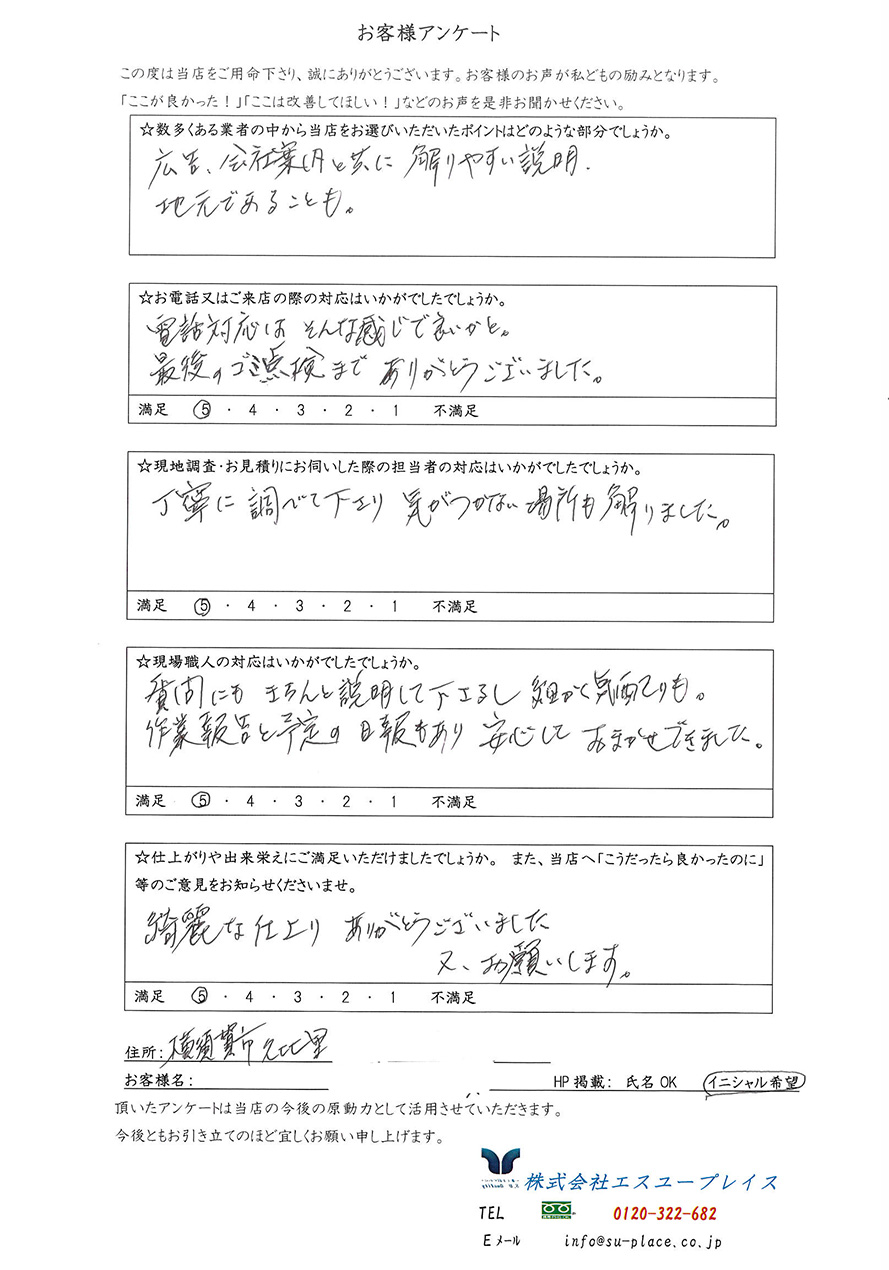 お客様アンケート
この度は当店をご用命下さり、誠にありがとうございます。お客様のお声が私どもの励みとなります。
「ここが良かった！」「ここは改善してほしい！」などのお声を是非お聞かせください。
☆数多くある業者の中から当店をお選びいただいたポイントはどのような部分でしょうか。
広告、会社案内と共に 解りやすい説明.
地元であることも。
☆お電話又はご来店の際の対応はいかがでしたでしょうか。
電話対応は そんな感じで良いかと。
最後のゴミ点検まで ありがとうございました。
満足 ⑤ ・ 4 ・ 3 ・ 2 ・ 1 不満足
☆現地調査・お見積りにお伺いした際の担当者の対応はいかがでしたでしょうか。
丁寧に調べて下さり 気がつかない場所も解りました。
満足 ⑤ ・ 4 ・ 3 ・ 2 ・ 1 不満足
☆現場職人の対応はいかがでしたでしょうか。
質問にも きちんと説明して下さるし 細かく気配りも。
作業報告と予定の日報もあり 安心して おまかせできました。
満足 ⑤ ・ 4 ・ 3 ・ 2 ・ 1 不満足
☆仕上がりや出来栄えにご満足いただけましたでしょうか。 また、当店へ「こうだったら良かったのに」
等のご意見をお知らせくださいませ。
綺麗な仕上り ありがとうございました
又、お願いします。
満足 ⑤ ・ 4 ・ 3 ・ 2 ・ 1 不満足
住所：横須賀市久比里
お客様名： HP掲載： 氏名OK イニシャル希望
頂いたアンケートは当店の今後の原動力として活用させていただきます。
今後ともお引き立てのほど宜しくお願い申し上げます。
株式会社エスユープレイス
TEL 0120-322-682
Eメール info@su-place.co.jp